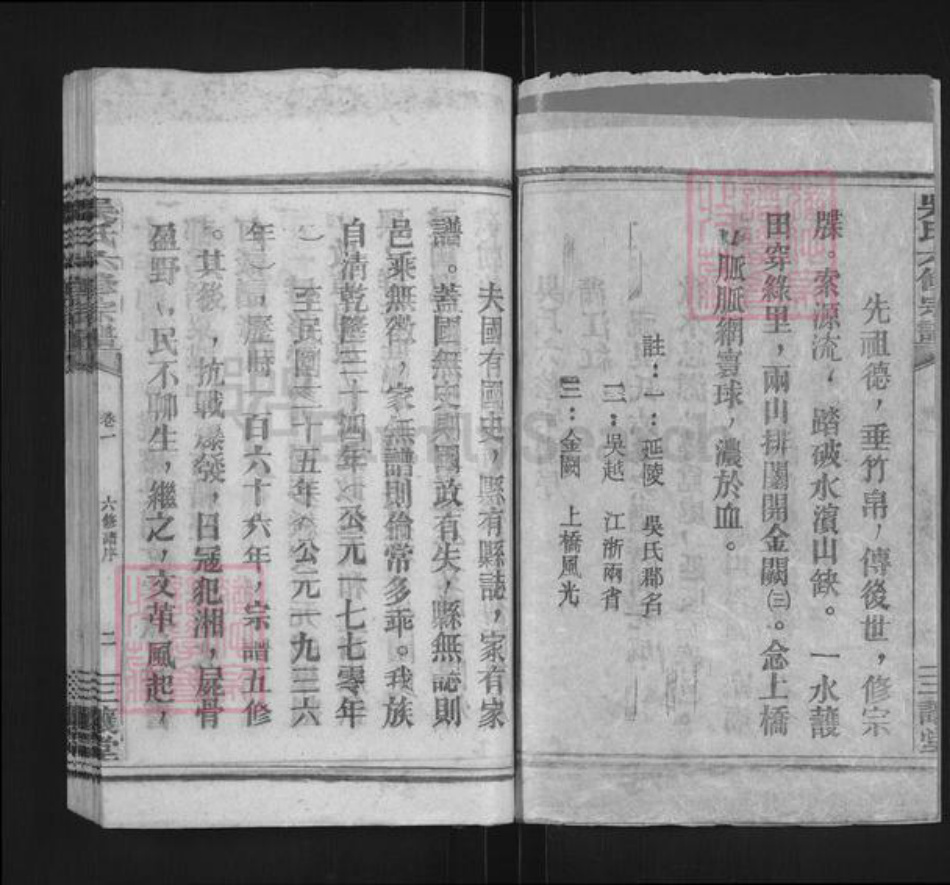 先祖德，垂竹帛，傳後世，修宗
牒。索源流，踏破水濱山缺。一水護
田穿綠里，兩山排闥開金闕㈢。念上橋
脈脈網寰球，濃於血。
註：一：延陵 吳氏郡名
二：吳越 江浙兩省
三：金闕 上橋風光
三讓堂
夫國有國史，縣有縣誌，家有家
譜。蓋國無史則國政有失，縣無誌則
邑乘無徵，家無譜則倫常多乖。我族
自清乾隆三十四年（公元一七七零年
）至民國二十五年（公元一九三六
年），歷時一百六十六年，宗譜五修
。其後，抗戰爆發，日冠犯湘，屍骨
盈野，民不聊生，繼之，文革風起，
吳氏六修宗譜
卷一
六修譜序
二
三讓堂
FamilySearch